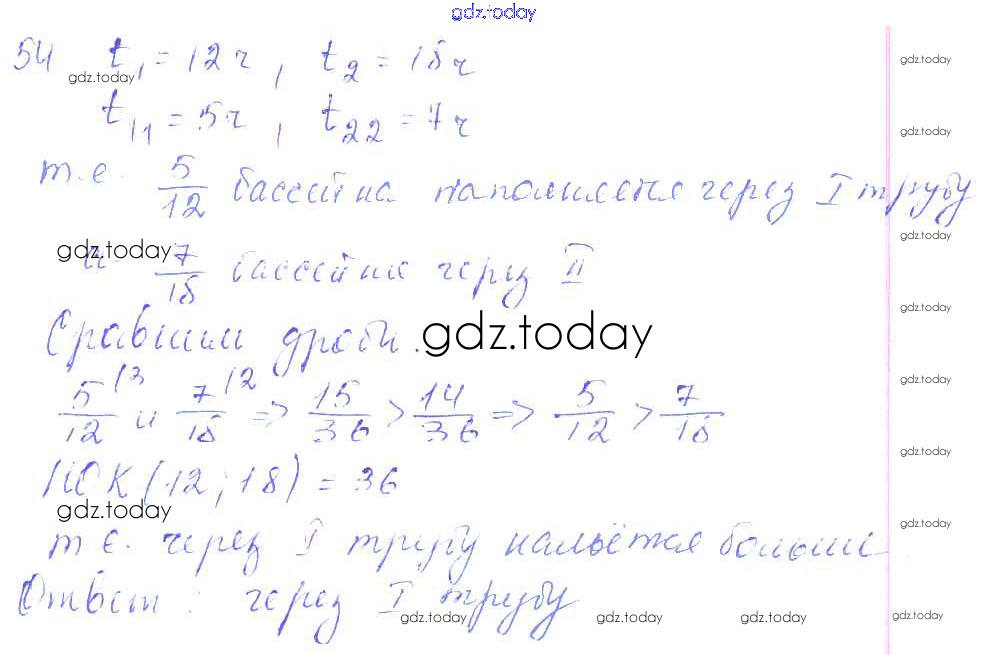 gdz.today
54 t₁ = 12 ч, t₂ = 18 ч
gdz.today
gdz.today
t₁₁ = 5 ч, t₂₂ = 7 ч
gdz.today
т.е. 5/12 бассейна наполняется через I трубу
gdz.today
gdz.today
и 7/18 бассейна через II
gdz.today
Сравним дроби.
gdz.today
5/12 |3 и 7/18 |2 => 15/36 > 14/36 => 5/12 > 7/18
gdz.today
НОК (12; 18) = 36
gdz.today
gdz.today
gdz.today
т.е. через I трубу нальётся больше
Ответ: через I трубу
gdz.today gdz.today gdz.today gdz.today